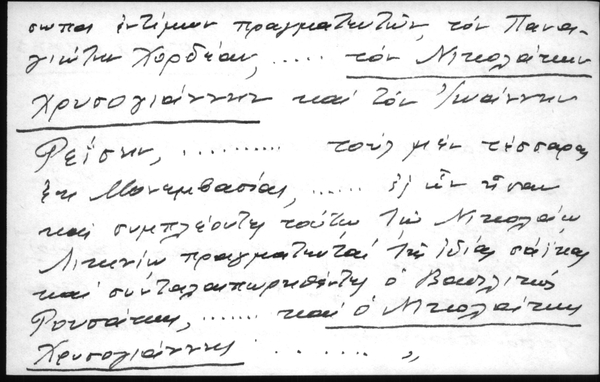 σωποι ἐντίμων πραγματευτῶν, τὸν Πανα-
γιώτην Χορδέαν, ..... τὸν Νικολάκην
Χρυσογιάννην καὶ τὸν Ἰωάννην
Ρεΐσην, .......... τοὺς μὲν τέσσαρας
ἐκ Μονεμβασίας, ...... ἐξ ὧν ἦσαν
καὶ συμπλέοντες τούτῳ τῷ Νικολάῳ
πραγματευταὶ τῆς ἰδίας σαΐκας
καὶ συνταλαιπωρηθέντες ὁ Βασίλειος
Ρουσάκης, ....... καὶ ὁ Νικολάκης
Χρυσογιάννης . . . . . . „